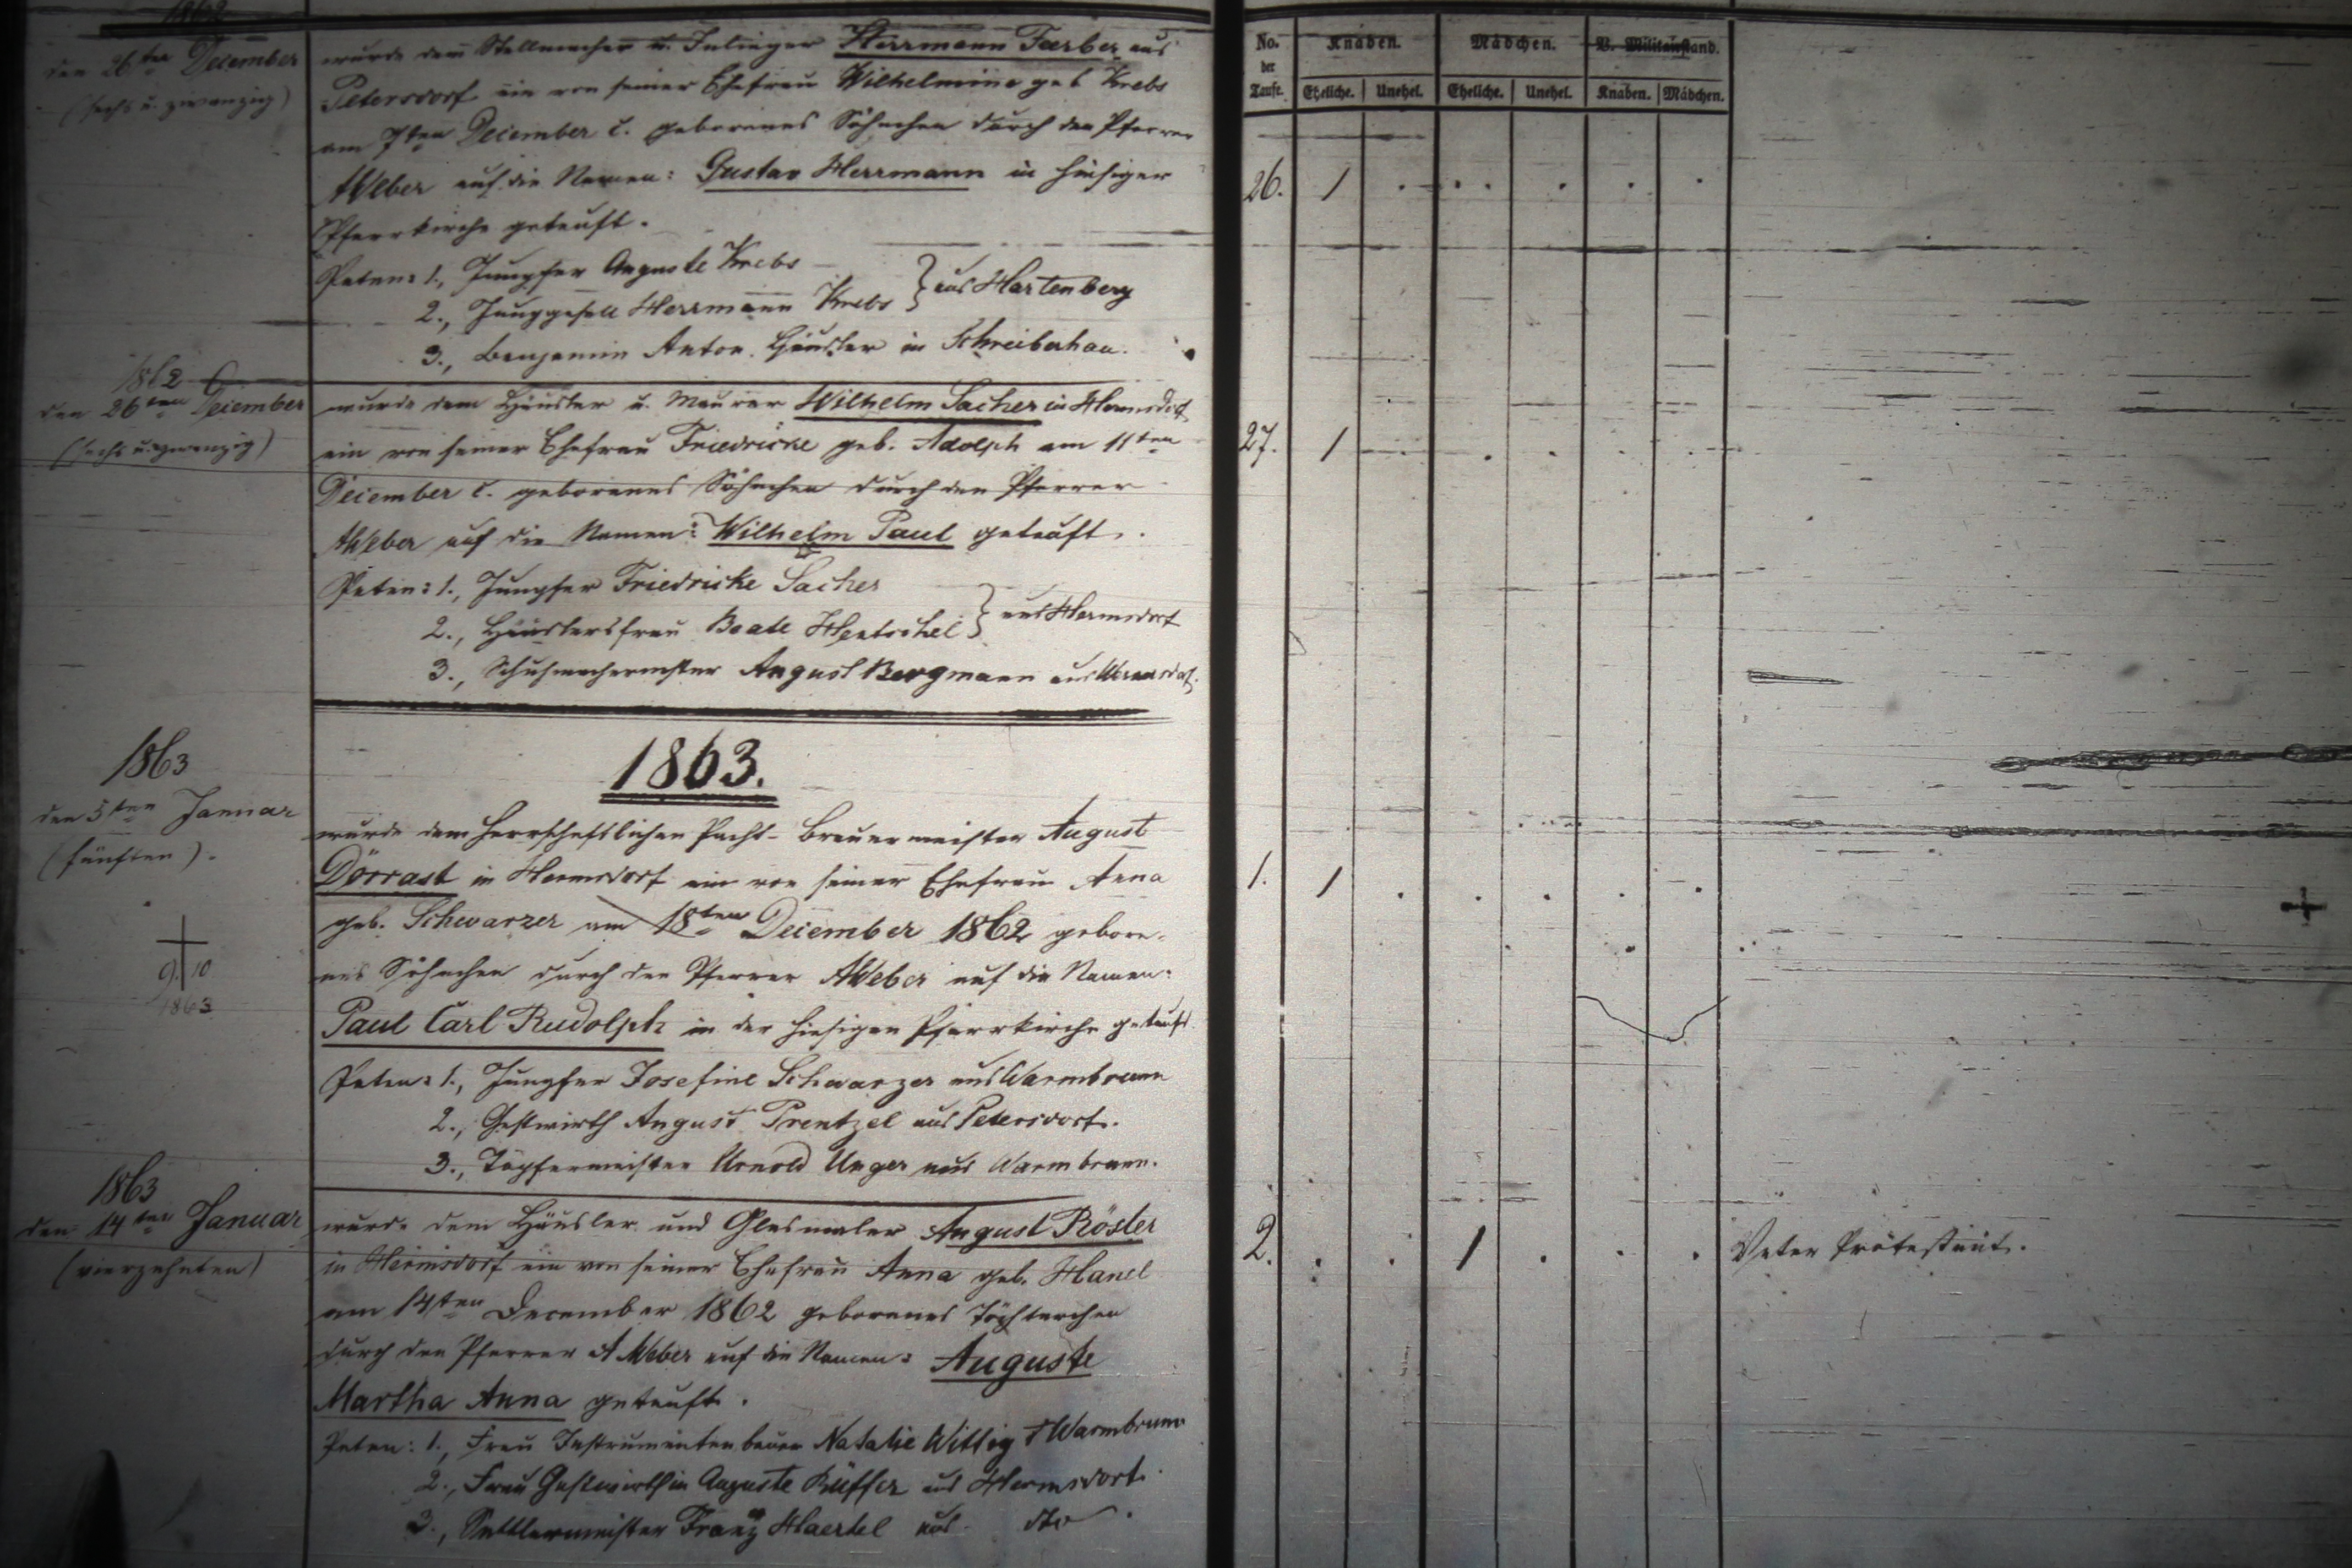 1862
den 26ten December
(sechs u. zwanzig)
wurde dem Stellmacher u. Inlieger Herrmann Faerber aus
Petersdorf ein von seiner Ehefrau Wilhelmine geb Krebs
am 7ten December c. geborenes Söhnchen durch den Pfarrer
AWeber auf die Namen: Gustav Herrmann in hiesiger
Pfarrkirche getauft.
Paten: 1., Jungfer Auguste Krebs
2., Junggesell Herrmann Krebs } aus Hartenberg
3., Benjamin Anton Häusler in Schreiberhau.
1862
den 26ten December
(sechs u. zwanzig)
wurde dem Häusler u. Maurer Wilhelm Sacher in Hermsdorf
ein von seiner Ehefrau Friedricke geb. Adolph am 11ten
December c. geborenes Söhnchen durch den Pfarrer
AWeber auf die Namen: Wilhelm Paul getauft.
Paten: 1., Jungfer Friedricke Sacher
2., Häuslersfrau Beate Hentschel } aus Hermsdorf
3., Schuhmachermster August Bergmann aus Wernersdorf.
1863.
1863
den 5ten Januar
(fünften).
wurde dem herrschaftlichen Pacht-Brauermeister August
Dörrast in Hermsdorf ein von seiner Ehefrau Anna
geb. Schwarzer am 18ten December 1862 gebore-
nes Söhnchen durch den Pfarrer AWeber auf die Namen:
Paul Carl Rudolph in der hiesigen Pfarrkirche getauft.
9. 10
1863
Paten: 1., Jungfer Josefine Schwarzer aus Warmbrunn
2., Gastwirth August Prentzel aus Petersdorf.
3., Töpfermeister Arnold Unger aus Warmbrunn.
1863
den 14ten Januar
(vierzehnten)
wurde dem Häusler und Glasmaler August Rösler
in Hermsdorf ein von seiner Ehefrau Anna geb. Hanel
am 14ten December 1862 geborenes Töchterchen
durch den Pfarrer AWeber auf die Namen: Auguste
Martha Anna getauft.
Paten: 1., Frau Instrumentenbauer Natalie Wittig Warmbrunn
2., Frau Gastwirthin Auguste Rüffer aus Hermsdorf.
3., Sattlermeister Franz Haertel aus dto.
No. der Taufe. Knaben. Mädchen. V. Militairstand.
Eheliche. Unehel. Eheliche. Unehel. Knaben. Mädchen.
26. 1 . . . . . .
27. 1 . . . .
1. 1 . . . . .
2. . . 1 . . . Vater Protestant.